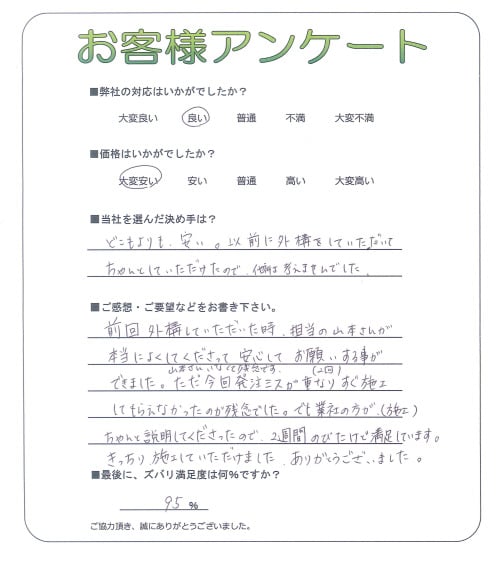 お客様アンケート
■弊社の対応はいかがでしたか？
大変良い 良い 普通 不満 大変不満
■価格はいかがでしたか？
大変安い 安い 普通 高い 大変高い
■当社を選んだ決め手は？
どこもよりも、安い。以前に外構をしていただいて
ちゃんとしていただけたので、他は考えませんでした。
■ご感想・ご要望などをお書き下さい。
前回 外構していただいた時、担当の山本さんが
本当によくしてくださって 安心して お願いする事が
山本さんいなくて残念です。 (2回)
できました。ただ今回発注ミスが重なりすぐ施工
してもらえなかったのが残念でした。でも業社の方が、(施工)
ちゃんと説明してくださったので、2週間のびたけど満足しています。
きっちり施工していただけました。ありがとうございました。
■最後に、ズバリ満足度は何%ですか？
95 %
ご協力頂き、誠にありがとうございました。